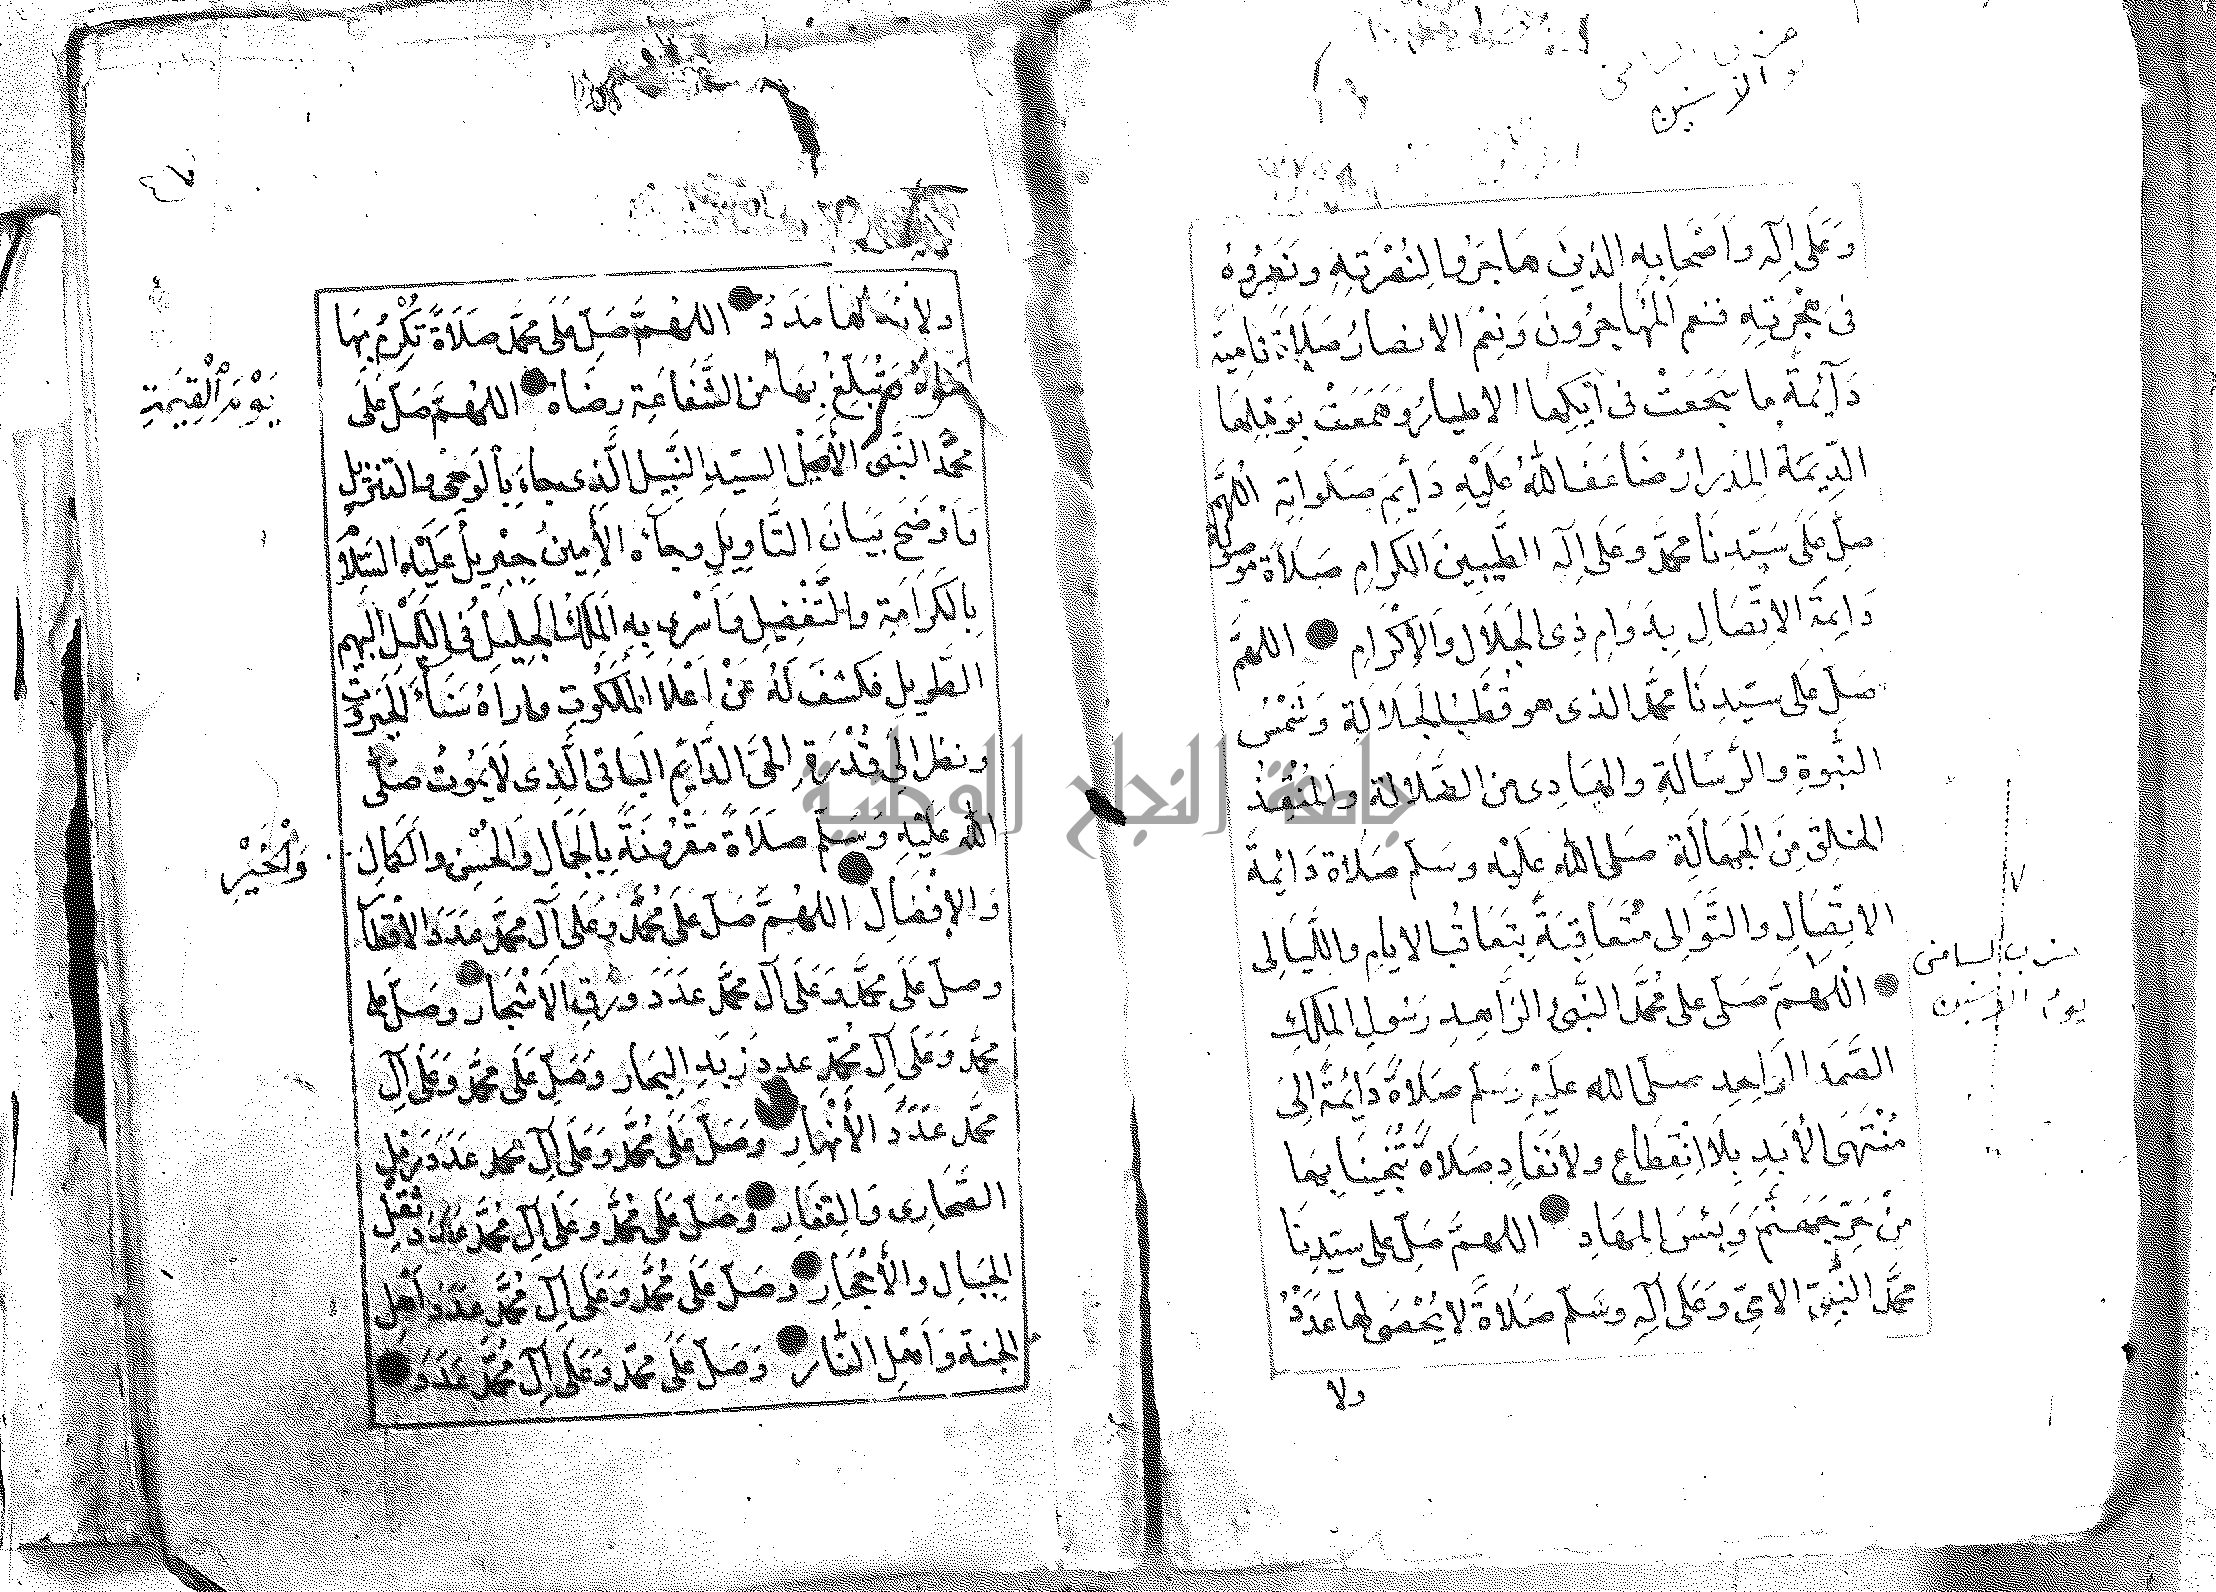 وَعَلَى اٰلِهِ وَاَصْحَابِهِ الَّذِينَ هَاجَرُوا لِنُصْرَتِهِ وَنَصَرُوهُ
فى هِجْرَتِهِ فنعم المُهَاجِرُونَ وَنِعْمَ الانصارُ صَلَاةً نامِيَة
دَآئِمَةً ما سَجَعَتْ فى اَيْكِهَا الاطيارُ وَهَمَعَتْ بِوَبْلِهَا
الدِّيمَة المِدْرارُ ضَاعَفَ اللهُ عَلَيْهِ دَائِمَ صَلَوَاتِهِ اللّهُمَّ
صلِّ عَلَى سَيِّدِنَا محمَّد وعَلَى اٰلِهِ الطَّيِّبِينَ الكرامِ صَلَاةً موصولة
دَائِمَةَ الاِتِّصَالِ بِدَوَامِ ذِى الجَلَالِ وَالاِكْرَامِ اللهمَّ
صَلِّ عَلى سَيِّدِنَا محمَّد الذى هو قُطْبُ الجَلَالَةِ وَشَمْسُ
النُّبُوَّةِ والرِّسَالَةِ والهَادِى مِنَ الضَّلَالَةِ وَالمُنْقِذُ
مِنَ الجَهَالَةِ صلى اللهُ عليْهِ وسَلم صَلاة دَائِمَةً
الاتِّصَالِ والتَّوَالِى مُتَعَاقِبَةً بِتَعَاقُبِ الايامِ واللَّيَالِى
حزب الثامن
يوم الاثنين
اللّهُمَّ صَلِّ على مُحَمَّد النَّبِىّ الزَّاهِدِ رَسُولِ المَلِكِ
الصَّمَدِ الوَاحِدِ صلى الله عَلَيْهِ وسَلم صَلَاةً دَائِمَةً اِلىَ
مُنْتَهَى الأَبَدِ بِلَا انْقِطَاعٍ ولا نَفَادٍ صَلَاةً تُنْجِينَا بِهَا
مِنْ حَرِّ جَهَنَّمَ وَبِئْسَ المِهَادِ اللهمَّ صَلِّ على سَيِّدِنَا
محمَّد النَّبِىّ الامِّىّ وَعَلَى اٰلِهِ وسَلِّم صَلَاةً لا يُحْصَى لها عَدَدٌ
ولا
ولا يُعَدُّ لها مَدَدٌ اللهمَّ صَلِّ عَلَى محمَّد صَلَاةً تُكْرِمُ بِهَا
مَثْوَاهُ وَتُبَلِّغُ بِهَا مِنَ الشَّفَاعَةِ رِضَاهُ اللهمَّ صَلِّ عَلَى
يَوْمَ الْقِيٰمَةِ
محمَّد النَّبِىّ الأَصِيل السَّيِّدِ النَّبِيلِ الَّذِى جاءَ بِالوَحْىِ والتنزيل
وَاَوْضَحَ بَيَانَ التَّاوِيلِ وجآءَه الأَمِينُ جِبْرِيلُ عَلَيْهِ السَّلَامُ
بِالكَرَامَةِ والتَّفْضِيلِ وَاَسْرَى بِهِ المَلِكُ الجَلِيلُ فى اللَّيْلِ البَهِيمِ
الطَّوِيلِ فكشفَ لَهُ عَنْ اَعْلَا المَلَكُوتِ واراهُ سَنَآءَ الجَبَرُوتِ
ونظر اِلَى قُدْرَةِ الحَىِّ الدَّائِمِ البَاقِى الَّذِى لَا يَمُوتُ صَلَّى
اللهُ عَلَيْهِ وَسَلم صَلَاةً مَقْرُونَةً بِالجَمَالِ وَالحُسْنِ وَالكَمَالِ
وَالْخَيْرِ
وَالاِفْضَالِ اللهمَّ صَلِّ عَلَى مُحَمَّد وَعَلَى آلِ محمَّد عَدَدَ الاقْطَار
وصلِّ عَلَى محمَّد وَعَلَى آلِ محمَّد عَدَدَ وَرَقِ الاَشْجَارِ وَصَلِّ عَلى
محمَّد وَعَلَى آلِ مُحَمَّد عددَ زَبَدِ البِحَارِ وَصَلِّ عَلَى محمَّد وَعَلَى آلِ
محمَّد عَدَدَ الأَنْهَارِ وَصَلِّ عَلَى مُحَمَّد وَعَلَى آلِ محمد عَدَدَ رَمْلِ
الصَّحَارِى وَالقِفَارِ وَصَلِّ عَلَى مُحَمَّد وعَلَى آلِ مُحَمَّد عَدَدَ ثِقَلِ
الجِبَالِ والأَحْجَارِ وصَلِّ عَلَى مُحَمَّد وَعَلَى آلِ مُحَمَّد عَدَدَ اَهْلِ
الجنة وَاَهْلِ النَّارِ وَصَلِّ عَلَى محمَّد وَعَلَى آلِ مُحَمَّد عَدَدَ
جامعة النجاح الوطنية